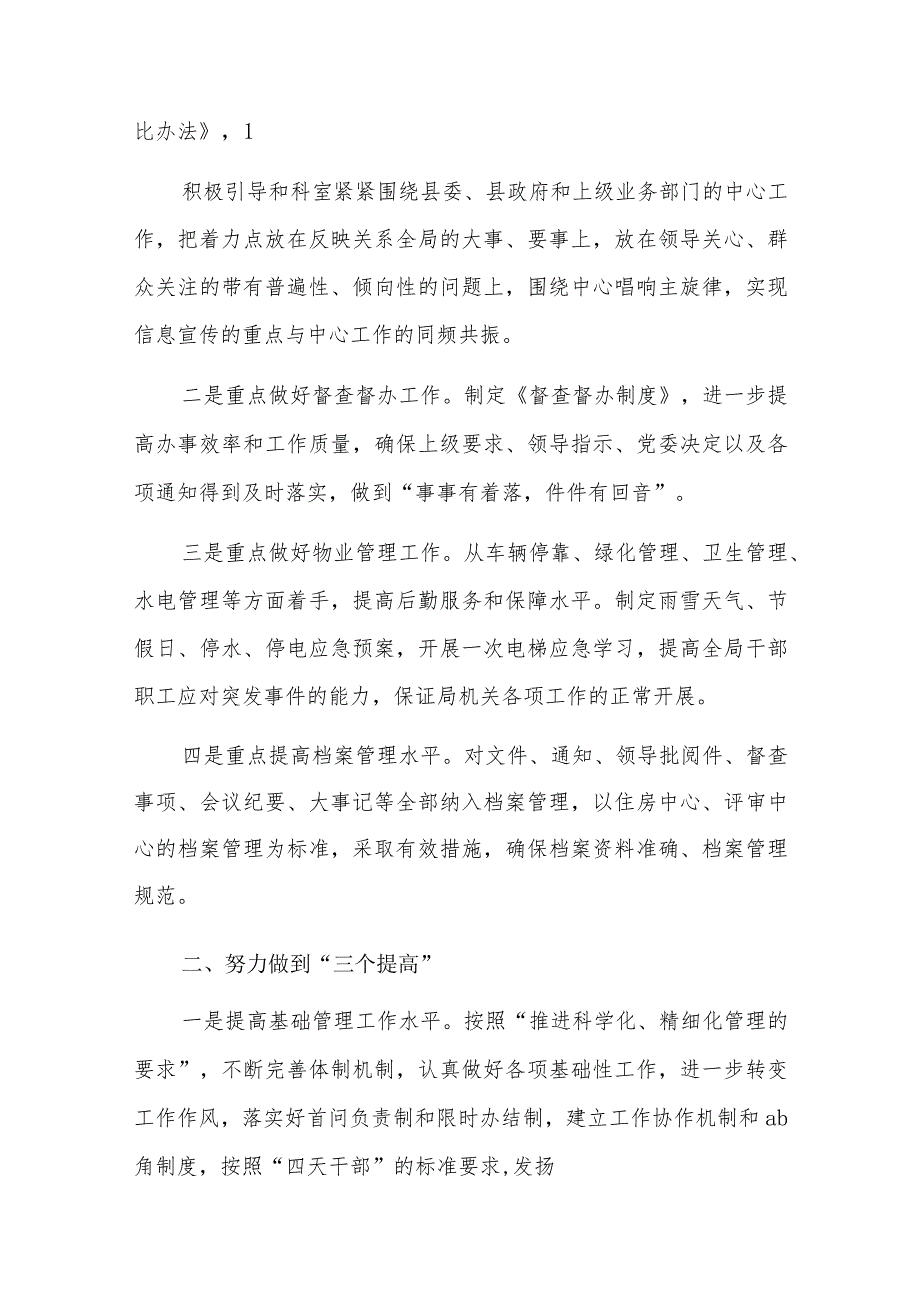 比办法》，1
积极引导和科室紧紧围绕县委、县政府和上级业务部门的中心工
作，把着力点放在反映关系全局的大事、要事上，放在领导关心、群
众关注的带有普遍性、倾向性的问题上，围绕中心唱响主旋律，实现
信息宣传的重点与中心工作的同频共振。
二是重点做好督查督办工作。制定《督查督办制度》，进一步提
高办事效率和工作质量，确保上级要求、领导指示、党委决定以及各
项通知得到及时落实，做到“事事有着落，件件有回音”。
三是重点做好物业管理工作。从车辆停靠、绿化管理、卫生管理、
水电管理等方面着手，提高后勤服务和保障水平。制定雨雪天气、节
假日、停水、停电应急预案，开展一次电梯应急学习，提高全局干部
职工应对突发事件的能力，保证局机关各项工作的正常开展。
四是重点提高档案管理水平。对文件、通知、领导批阅件、督查
事项、会议纪要、大事记等全部纳入档案管理，以住房中心、评审中
心的档案管理为标准，采取有效措施，确保档案资料准确、档案管理
规范。
二、努力做到“三个提高”
一是提高基础管理工作水平。按照“推进科学化、精细化管理的
要求”，不断完善体制机制，认真做好各项基础性工作，进一步转变
工作作风，落实好首问负责制和限时办结制，建立工作协作机制和ab
角制度，按照“四天干部”的标准要求,发扬